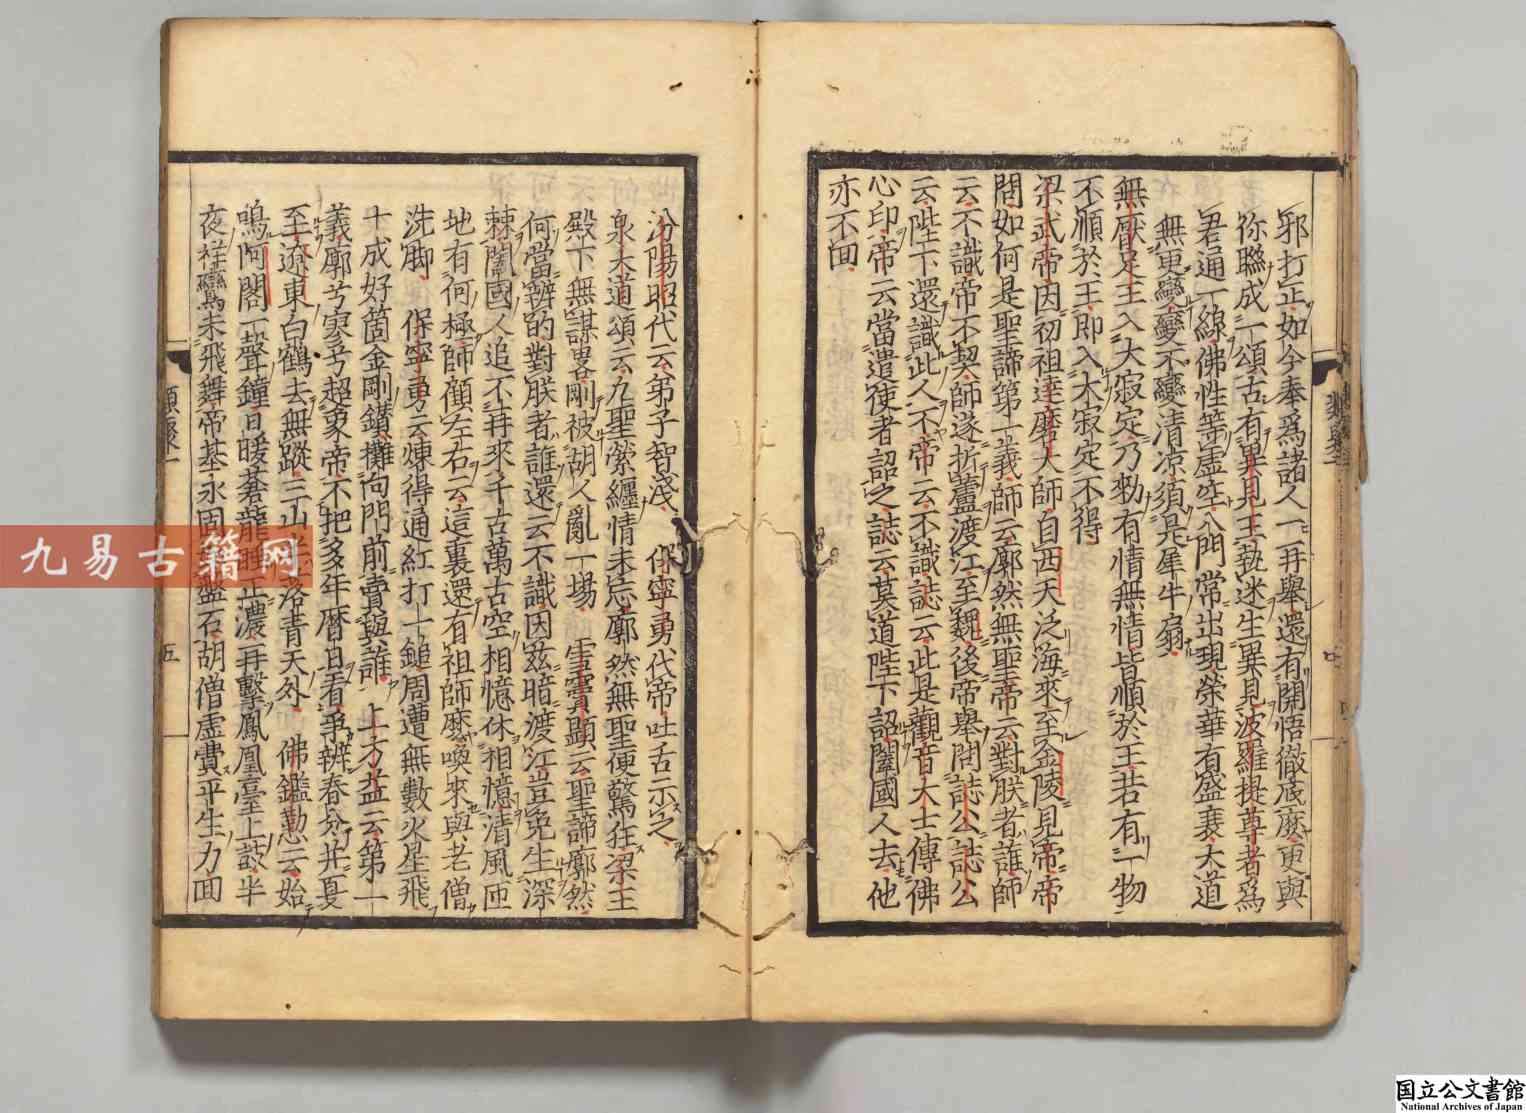 邪打正如今奉爲諸人一一再舉還有開悟徹底麼更與
你聯成一頌古有異見王執迷生異見波羅提尊者爲
君通一線佛性等虛空八門常出現榮華有盛衰大道
無更變變不變清凉須是犀牛扇
無厭足王入大寂定乃勑有情無情皆順於王若有一物
不順於王即入大寂定不得
梁武帝因初祖達磨大師自西天泛海來至金陵見帝帝
問如何是聖諦第一義師云廓然無聖帝云對朕者誰師
云不識帝不契師遂折蘆渡江至魏後帝舉問誌公誌公
云陛下還識此人不帝云不識誌云此是觀音大士傳佛
心印帝云當遣使者詔之誌云莫道陛下詔闔國人去他
亦不回
汾陽昭代云弟子智淺 保寧勇代帝吐舌示之
泉大道頌云九聖縈纏情未忘廓然無聖便驚狂梁王
殿下無謀畧剛被胡人亂一場 雪竇顯云聖諦廓然
何當辨的對朕者誰還云不識因兹暗渡江豈免生深
棘闔國人追不再來千古萬古空相憶休相憶清風匝
地有何極師顧左右云這裏還有祖師麼喚來與老僧
洗脚 保寧勇云煉得通紅打一鎚周遭無數火星飛
十成好箇金剛鑽攤向門前賣與誰 上方益云第一
義廓兮寥兮超象帝不把多年曆日看爭辨春分并夏
至遼東白鶴去無蹤三山半落青天外 佛鑑懃云始
鳴阿閣一聲鐘日暖蒼龍睡正濃再擊鳳凰臺上鼓半
夜祥鸞未飛舞帝基永固如盤石胡僧虛費平生力回
頌聚一
五
九易古籍网
国立公文書館
National Archives of Japan